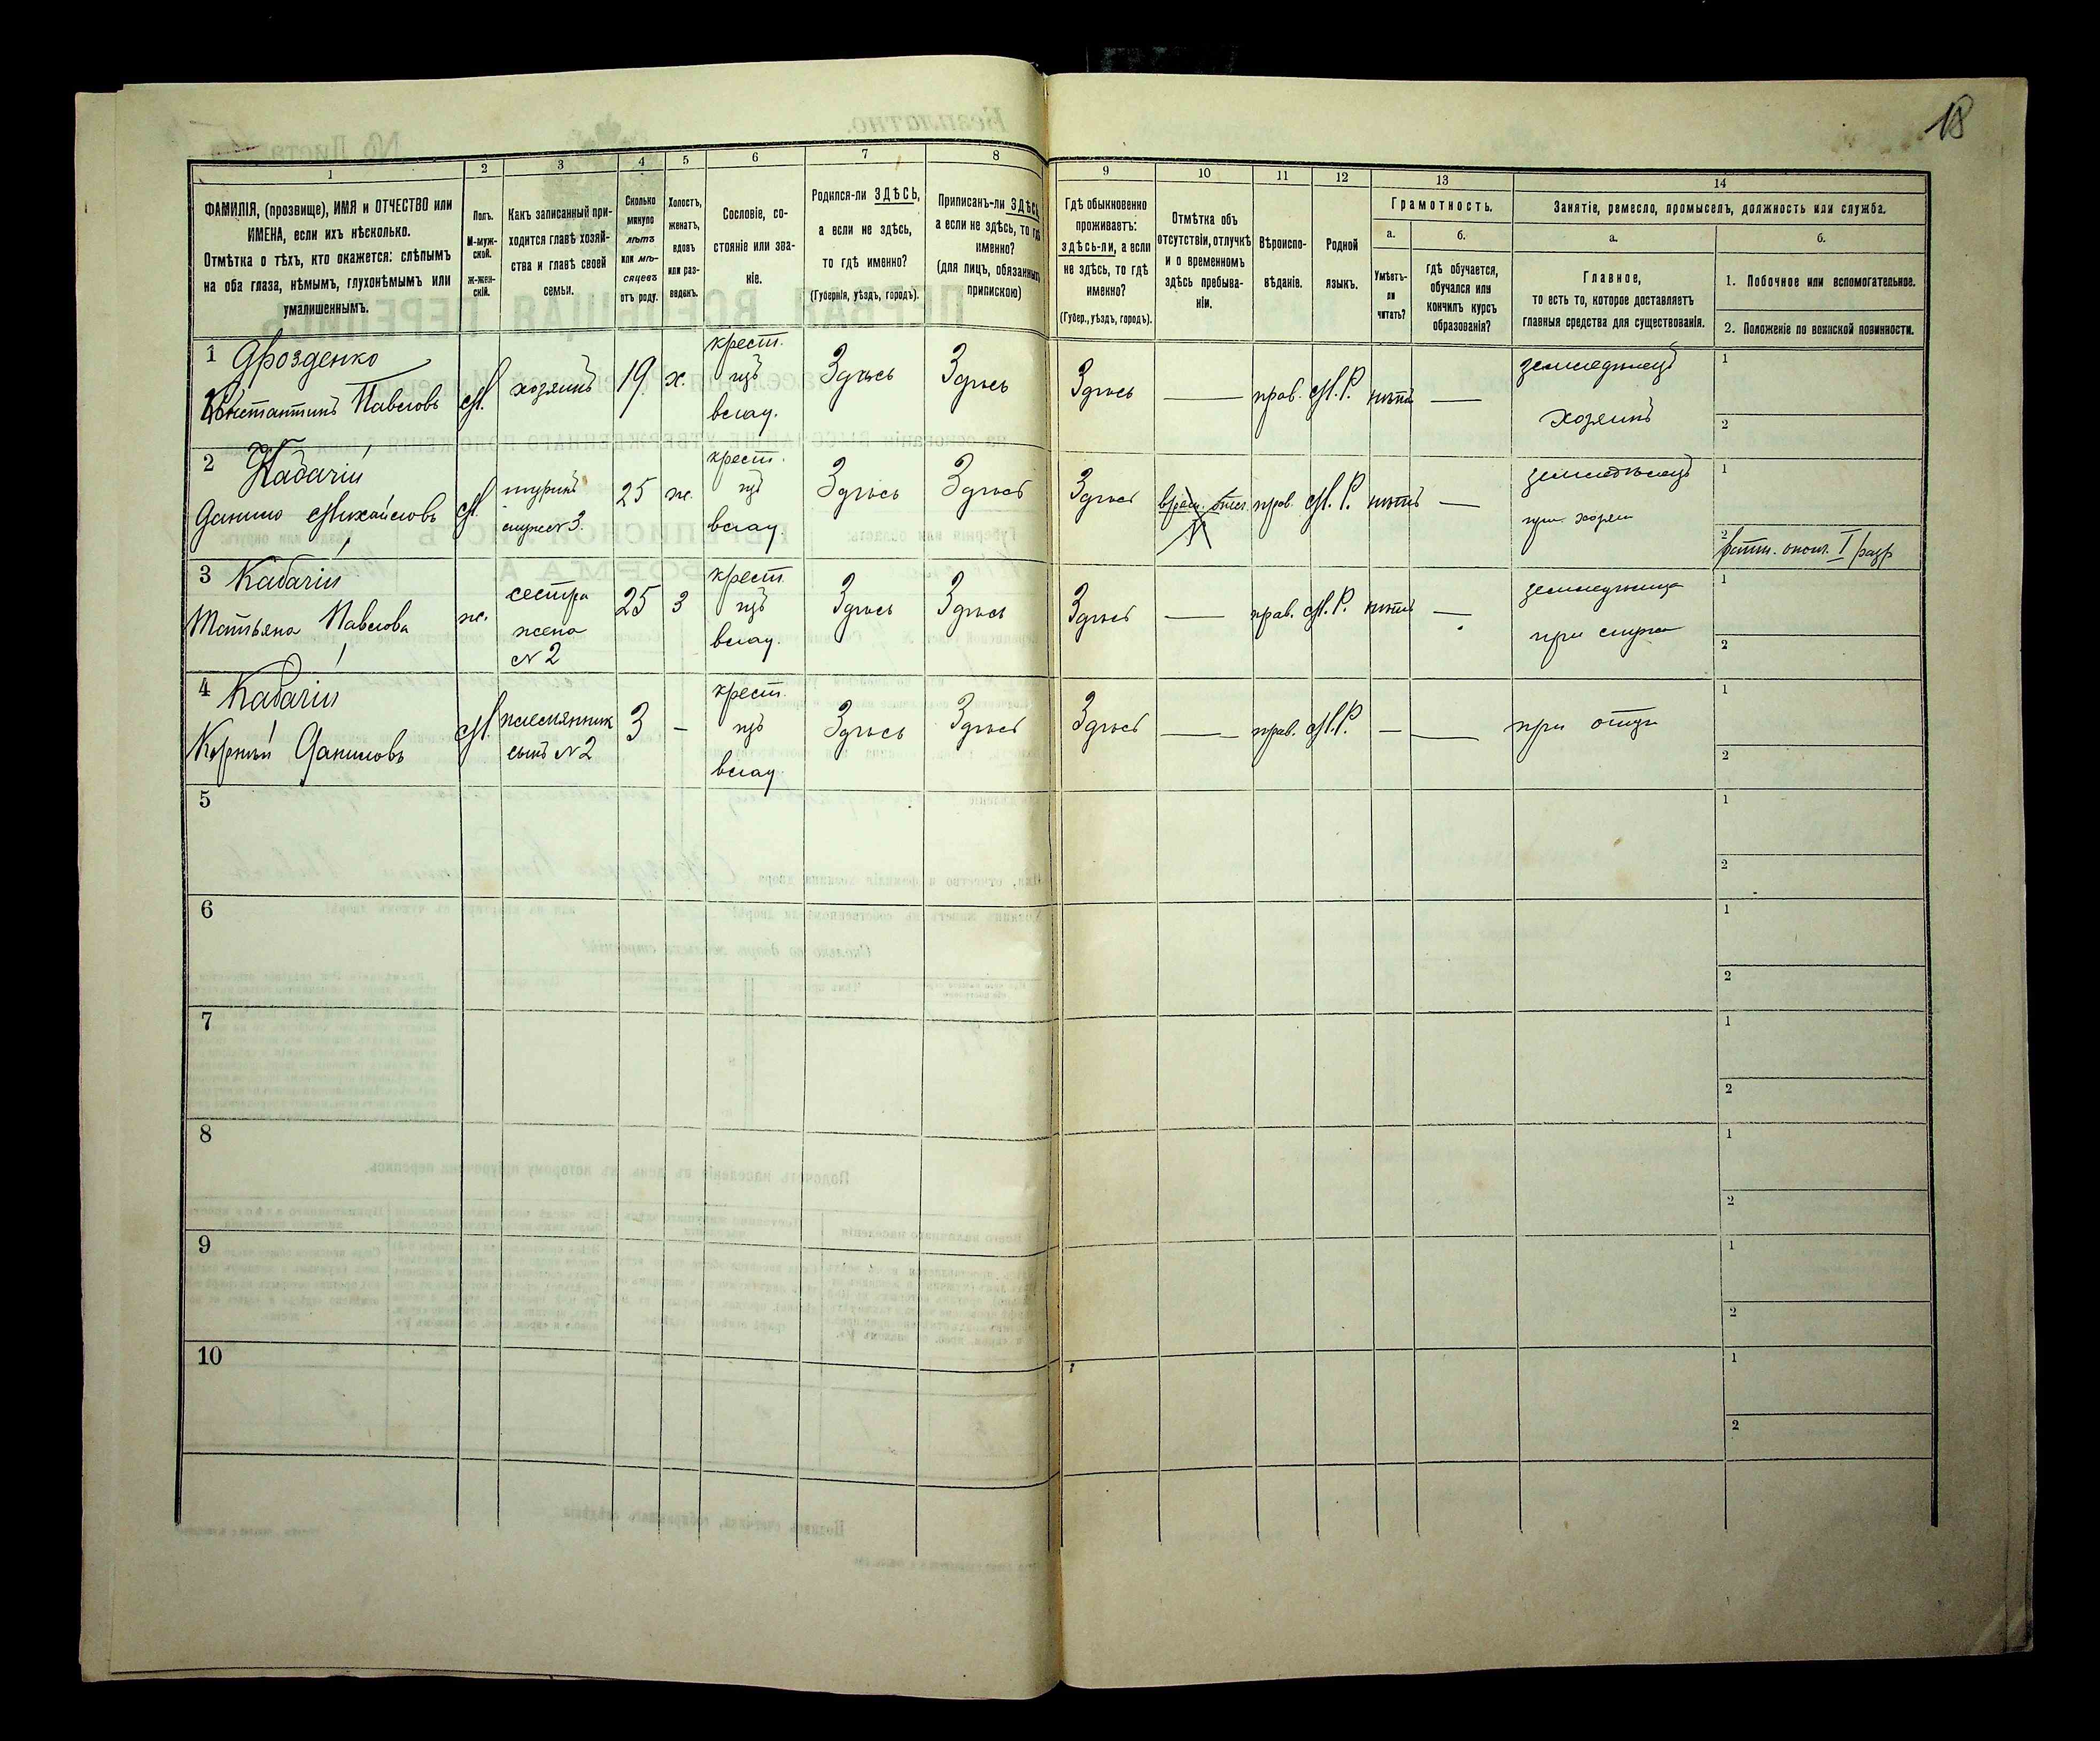 18
1
2
3
4
5
6
7
8
9
10
11
12
13
14
ФАМИЛІЯ, (прозвище), ИМЯ и ОТЧЕСТВО или
ИМЕНА, если ихъ нѣсколько.
Отмѣтка о тѣхъ, кто окажется: слѣпымъ
на оба глаза, нѣмымъ, глухонѣмымъ или
умалишеннымъ.
Полъ.
М-муж-
ской.
ж-жен-
скій.
Какъ записанный при-
ходится главѣ хозяй-
ства и главѣ своей
семьи.
Сколько
минуло
лѣтъ
или мѣ-
сяцевъ
отъ роду.
Холостъ,
женатъ,
вдовъ
или раз-
веденъ.
Сословіе, со-
стояніе или зва-
ніе.
Родился-ли ЗДѢСЬ,
а если не здѣсь,
то гдѣ именно?
(Губернія, уѣздъ, городъ).
Приписанъ-ли ЗДѢСЬ,
а если не здѣсь, то гдѣ
именно?
(для лицъ, обязанныхъ
припискою)
Гдѣ обыкновенно
проживаетъ:
здѣсь-ли, а если
не здѣсь, то гдѣ
именно?
(Губер., уѣздъ, городъ).
Отмѣтка объ
отсутствіи, отлучкѣ
и о временномъ
здѣсь пребыва-
ніи.
Вѣроиспо-
вѣданіе.
Родной
языкъ.
Грамотность.
а.
б.
Умѣетъ-
ли
читать?
гдѣ обучается,
обучался или
кончилъ курсъ
образованія?
Занятіе, ремесло, промыселъ, должность или служба.
а.
б.
Главное,
то есть то, которое доставляетъ
главныя средства для существованія.
1. Побочное или вспомогательное.
2. Положеніе по воинской повинности.
1 Дрозденко
Константинъ Павловъ
М.
хозяинъ
19
х.
крест.
изъ
влад.
Здѣсь
Здѣсь
Здѣсь
—
прав.
М.Р.
нѣтъ
—
земледѣлецъ
хозяинъ
1
2
2 Кабачій
Данило Михайловъ
М.
шуринъ
мужъ №3.
25
ж.
крест.
изъ
влад.
Здѣсь
Здѣсь
Здѣсь
прав.
М.Р.
нѣтъ
—
земледѣлецъ
при хозяи
1
2 ратн. опол. I разр
3 Кабачій
Татьяна Павлова
ж.
сестра
жена
№2
25
З
крест.
изъ
влад.
Здѣсь
Здѣсь
Здѣсь
—
прав.
М.Р.
нѣтъ
—
земледѣлица
при мужѣ
1
2
4 Кабачій
Корній Даниловъ
М.
племянник
сынъ №2
3
—
крест.
изъ
влад.
Здѣсь
Здѣсь
Здѣсь
—
прав.
М.Р.
—
—
при отцѣ
1
2
5
1
2
6
1
2
7
1
2
8
1
2
9
1
2
10
1
2